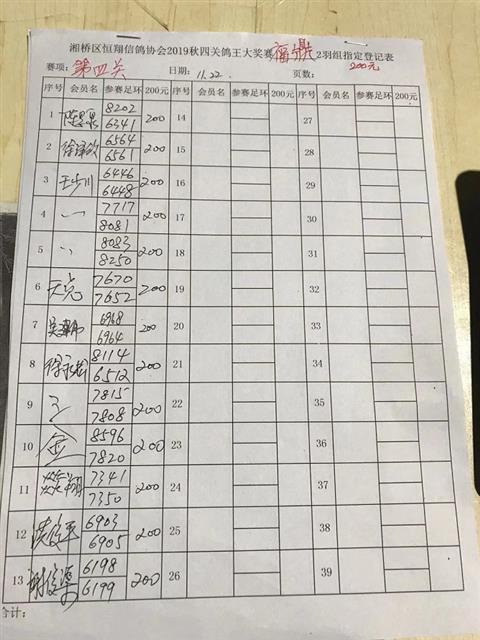 湘桥区恒翔信鸽协会2019秋四关鸽王大奖赛 福鼎 2羽组指定登记表
赛项：第四关 日期：11.22. 页数： 200元
序号 会员名 参赛足环 200元 序号 会员名 参赛足环 200元 序号 会员名 参赛足环 200元
1 8202 6341 200 14 27
2 6564 6561 200 15 28
3 6446 6448 200 16 29
4 7717 8081 200 17 30
5 8083 8250 200 18 31
6 7670 7652 200 19 32
7 6968 6964 200 20 33
8 8114 6512 200 21 34
9 7815 7808 200 22 35
10 8596 7820 200 23 36
11 7341 7350 200 24 37
12 6903 6905 200 25 38
13 6198 6199 200 26 39
合计：